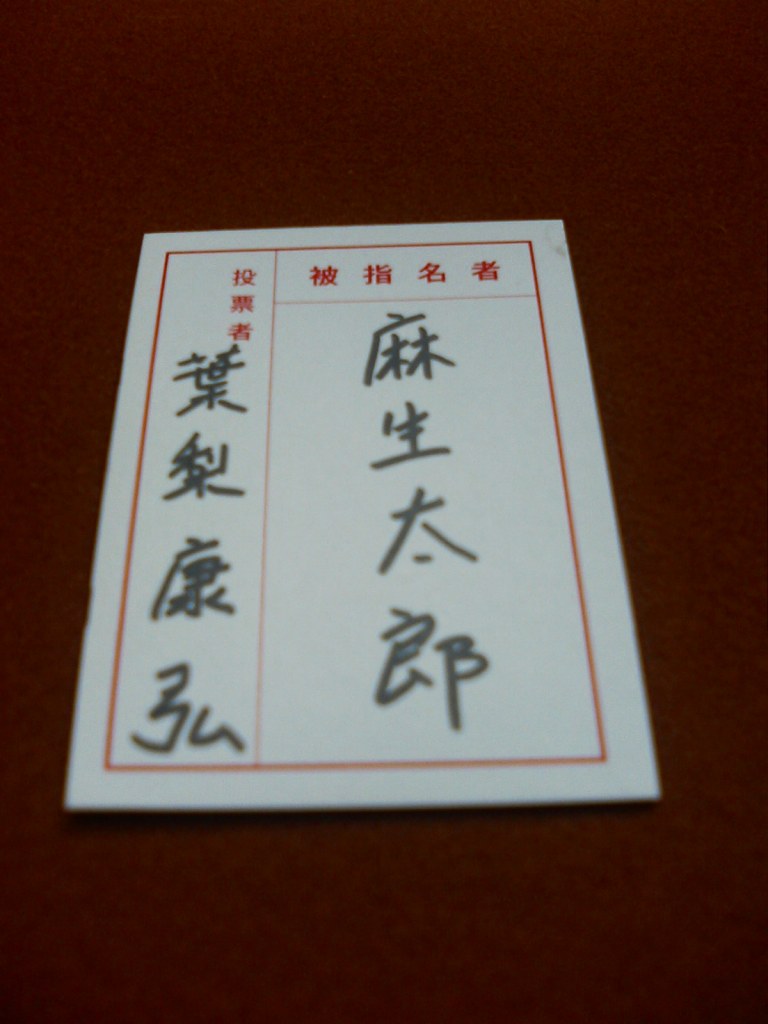 被指名者
麻生太郎
投票者
葉梨康弘